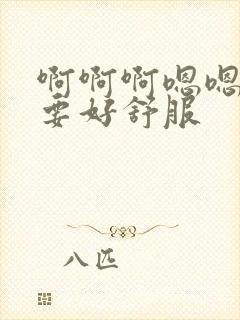 啊啊啊嗯嗯
要好舒服
八匹